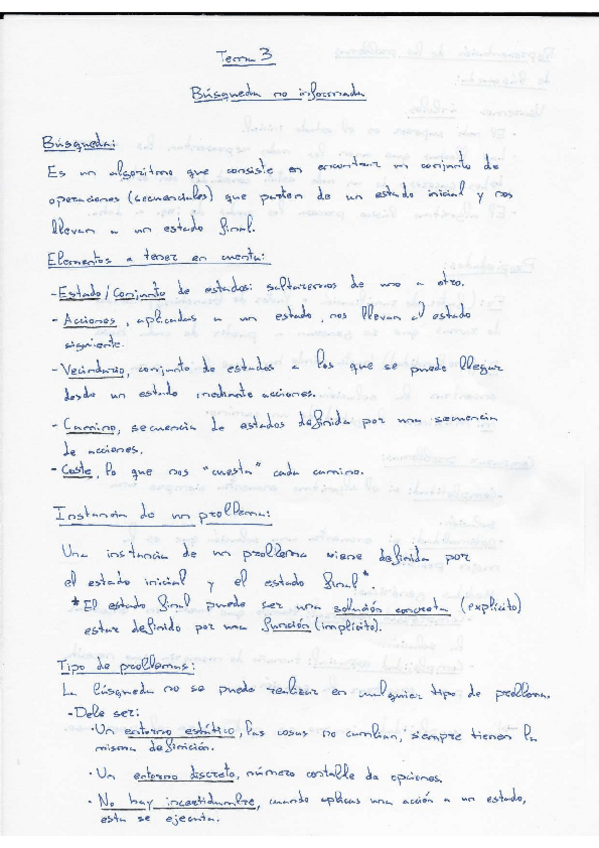 Tema 3
Búsqueda no informada
Búsqueda:
Es un algoritmo que consiste en encontrar un conjunto de
operaciones (secuenciales) que parten de un estado inicial y nos
llevan a un estado final.
Elementos a tener en cuenta:
- Estado/Conjunto de estados: saltaremos de uno a otro.
- Acciones, aplicadas a un estado, nos llevan al estado
siguiente.
- Vecindario, conjunto de estados a los que se puede llegar
desde un estado mediante acciones.
- Camino, secuencia de estados definida por una secuencia
de acciones.
- Coste, lo que nos "cuesta" cada camino.
Instancia de un problema:
Una instancia de un problema viene definida por
el estado inicial y el estado final*.
* El estado final puede ser una solución concreta (explícito)
estar definido por una función (implícito).
Tipo de problemas:
La búsqueda no se puede realizar en cualquier tipo de problema.
- Debe ser:
· Un entorno estático, las cosas no cambian, siempre tienen la
misma definición.
· Un entorno discreto, número contable de opciones.
· No hay incertidumbre, cuando aplicas una acción a un estado,
esta se ejecuta.